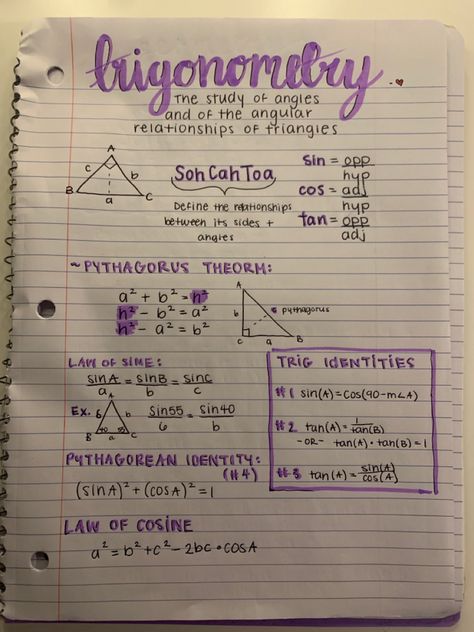 trigonometry
The study of angles
and of the angular
relationships of triangles
A
c
b
B
a
C
SohCahToa
Define the relationships
between its sides +
angles
sin = opp
hyp
cos = adj
hyp
tan = opp
adj
~PYTHAGORUS THEORM:
a² + b² = h²
h² - b² = a²
h² - a² = b²
A
b
C
a
B
pythagorus
LAW OF SINE:
sinA = sinB = sinC
a b c
Ex.
A
6
b
B
40
55
C
a
sin55 = sin40
6 b
TRIG IDENTITIES
#1 sin(A)=cos(90-m∠A)
#2 tan(A)= 1
tan(B)
-OR- tan(A)·tan(B)=1
#3 tan(A)= sin(A)
cos(A)
PYTHAGOREAN IDENTITY:
(#4)
(sinA)²+(cosA)²=1
LAW OF COSINE
a²=b²+c²-2bc·cosA